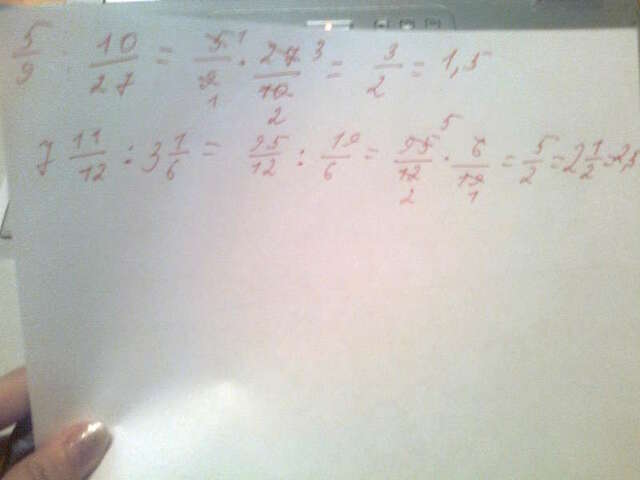 5/9 10/27 = 5/9 1/1 · 27/10 3/2 = 3/2 = 1,5
7 11/12 : 3 1/6 = 95/12 : 19/6 = 95/12 5/2 · 6/19 1 = 5/2 = 2 1/2 = 2,5